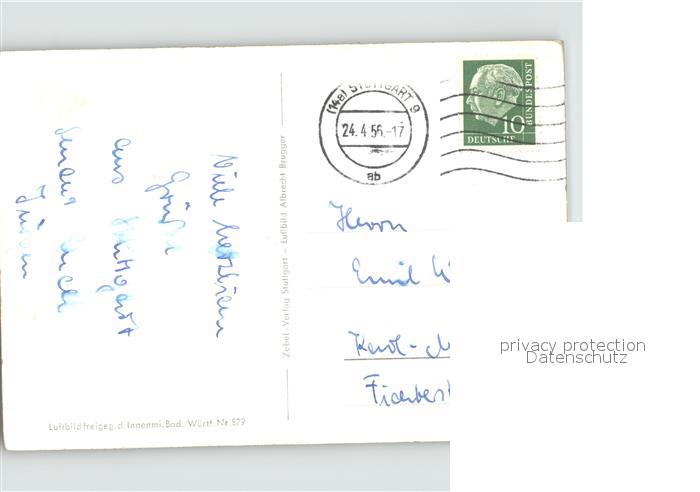 Viele herzlichen
Grüße
aus Stuttgart
sendet Euch
(14a) STUTTGART 9
24. 4. 56.-17
ab
10
DEUTSCHE
BUNDESPOST
Zebel-Verlag Stuttgart – Luftbild Albrecht Brugger
Herrn
Emil
Karl-
Luftbild freigeg. d. Innenmi. Bad. Württ. Nr. 879
privacy protection
Datenschutz